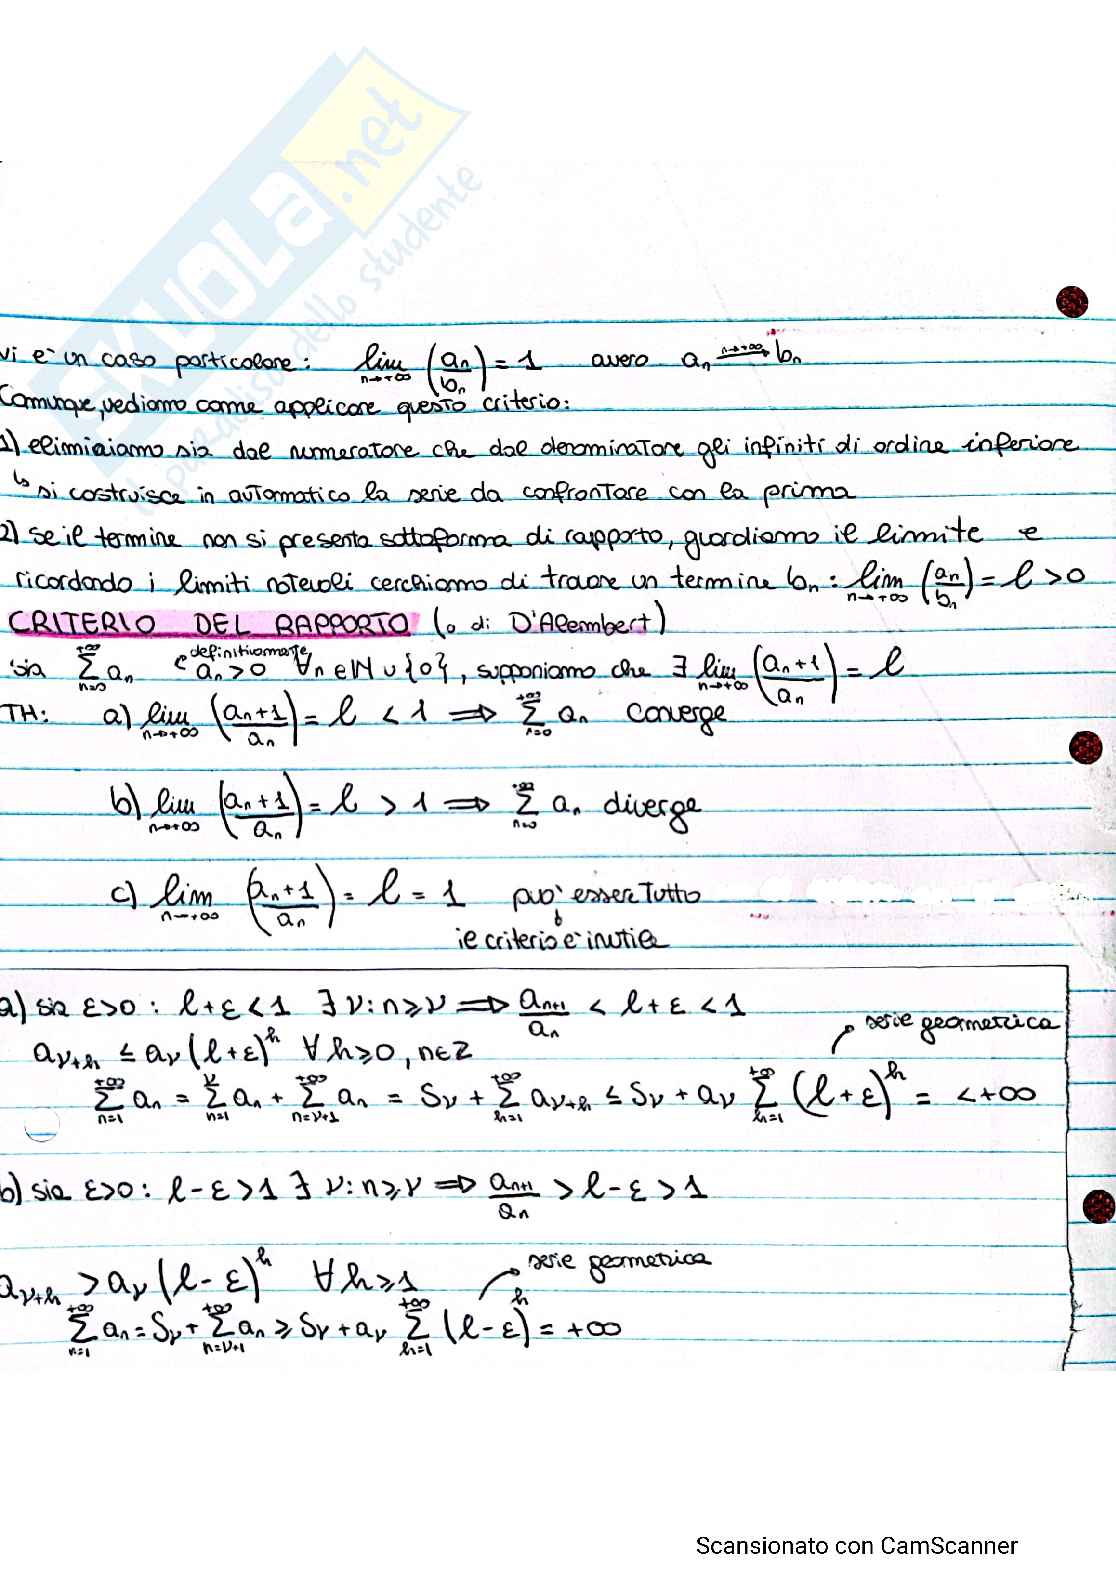 SKUOLA.net
il paradiso dello studente
vi è un caso particolare: lim n→+∞ (an/bn) = 1 ovvero an n→+∞→ bn
Comunque, vediamo come applicare questo criterio:
1) eliminiamo sia dal numeratore che dal denominatore gli infiniti di ordine inferiore
↳ si costruisce in automatico la serie da confrontare con la prima
2) se il termine non si presenta sottoforma di rapporto, guardiamo il limite e
ricordando i limiti notevoli cerchiamo di trovare un termine bn : lim n→+∞ (an/bn) = l > 0
CRITERIO DEL RAPPORTO (o di D'Alembert)
sia +∞Σn=0 an e definitivamente an > 0 ∀n ∈ ℕ ∪ {0}, supponiamo che ∃ lim n→+∞ (an+1/an) = l
TH: a) lim n→+∞ (an+1/an) = l < 1 ⟹ +∞Σn=0 an converge
b) lim n→+∞ (an+1/an) = l > 1 ⟹ +∞Σn=0 an diverge
c) lim n→+∞ (an+1/an) = l = 1 può esser tutto
↓
il criterio è inutile
a) sia ε>0 : l+ε < 1 ∃ ν : n ≥ ν ⟹ an+1/an < l+ε < 1
serie geometrica
aν+h ≤ aν (l+ε)^h ∀ h ≥ 0, n∈Z
+∞Σn=1 an = νΣn=1 an + +∞Σn=ν+1 an = Sν + +∞Σh=1 aν+h ≤ Sν + aν +∞Σh=1 (l+ε)^h = < +∞
b) sia ε>0 : l-ε > 1 ∃ ν : n ≥ ν ⟹ an+1/an > l-ε > 1
serie geometrica
aν+h > aν (l-ε)^h ∀ h ≥ 1
+∞Σn=1 an = Sν + +∞Σn=ν+1 an ≥ Sν + aν +∞Σh=1 (l-ε)^h = +∞
Scansionato con CamScanner